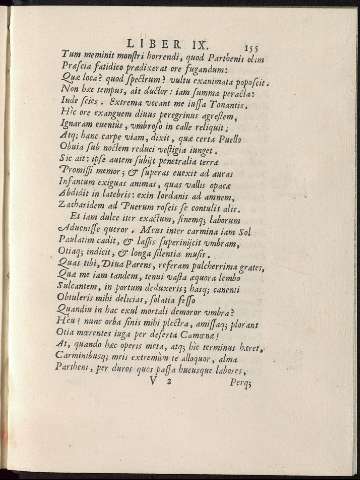 LIBER IX. 155
Tum meminit monstri horrendi, quod Parthenis olim
Præscia fatidico prædixerat ore fugandum:
Quæ loca? quod spectrum? vultu exanimata poposcit.
Non hæc tempus, ait ductor: iam summa peracta:
Inde scies. Extrema vocant me iussa Tonantis.
Hîc ore exanguem diuus peregrinus agrestem,
Ignaram euentus, vmbroso in calle reliquit;
Atq; hanc carpe viam, dixit, quæ certa Puello
Obuia sub noctem reduci vestigia iunget.
Sic ait: ipse autem subijt penetralia terræ
Promissi memor; & superas euexit ad auras
Infantum exiguas animas, quas vallis opacæ
Abdidit in latebris: exin Iordanis ad amnem,
Zachariden ad Puerum roseis se contulit alis.
Et iam dulce iter exactum, finemq; laborum
Aduenisse queror. Meus inter carmina iam Sol
Paulatim cadit, & lassis superinijcit vmbram,
Otiaq; indicit, & longa silentia musis.
Quas tibi, Diua Parens, referam pulcherrima grates,
Quæ me iam tandem, tenui vasta æquora lembo
Sulcantem, in portum deduxeris; hasq; canenti
Obtuleris mihi delicias, solatia fesso
Quandiu in hac exul mortali demoror vmbra?
Heu! nunc orba finis mihi plectra, amissaq; plorant
Otia mærentes iuga per deserta Camœnæ!
At, quando hæc operis meta, atq; hic terminus hæret,
Carminibusq; meis extremùm te alloquor, alma
Partheni, per duros quos passa hucusque labores,
V 2 Perq;